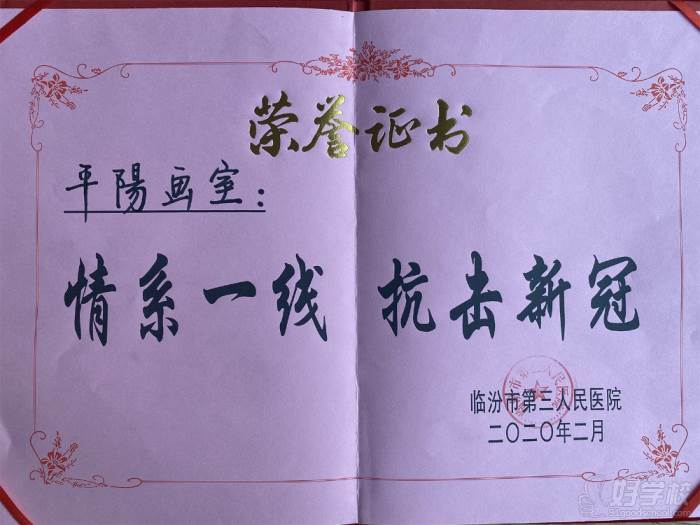 荣誉证书
平陽画室：
情系一线 抗击新冠
临汾市第三人民医院
二〇二〇年二月
好学校
91goodschool.com